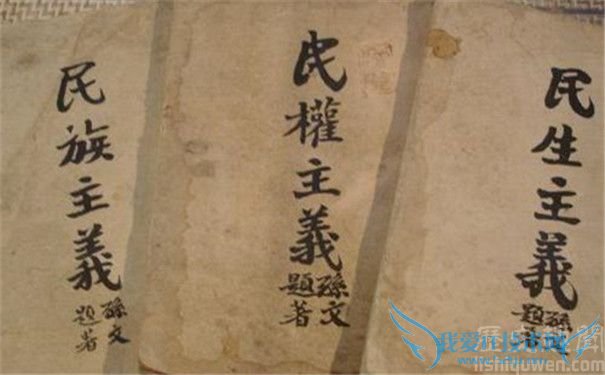 民族主義
孫文
題著
民權主義
孫文
題著
民生主義
孫文
題
我爱IT技术网
lishiquwen.com